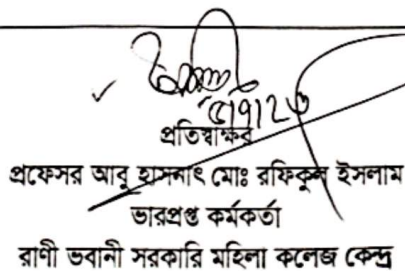 প্রতিস্বাক্ষর
প্রফেসর আবু হাসনাৎ মোঃ রফিকুল ইসলাম
ভারপ্রপ্ত কর্মকর্তা
রাণী ভবানী সরকারি মহিলা কলেজ কেন্দ্র